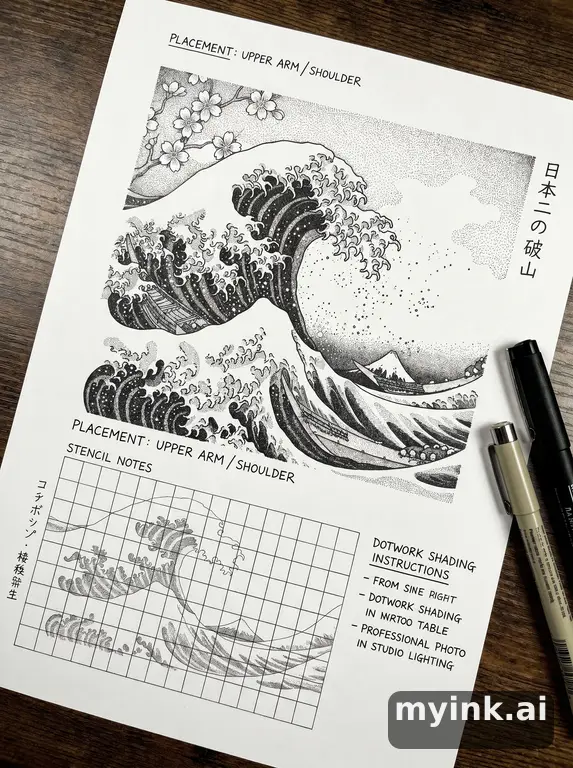 PLACEMENT: UPPER ARM/SHOULDER
日本二の破山
PLACEMENT: UPPER ARM/SHOULDER
STENCIL NOTES
DOTWORK SHADING
INSTRUCTIONS
- FROM SINE RIGHT
- DOTWORK SHADING
IN MRTOO TABLE
- PROFESSIONAL PHOTO
IN STUDIO LIGHTING
myink.ai